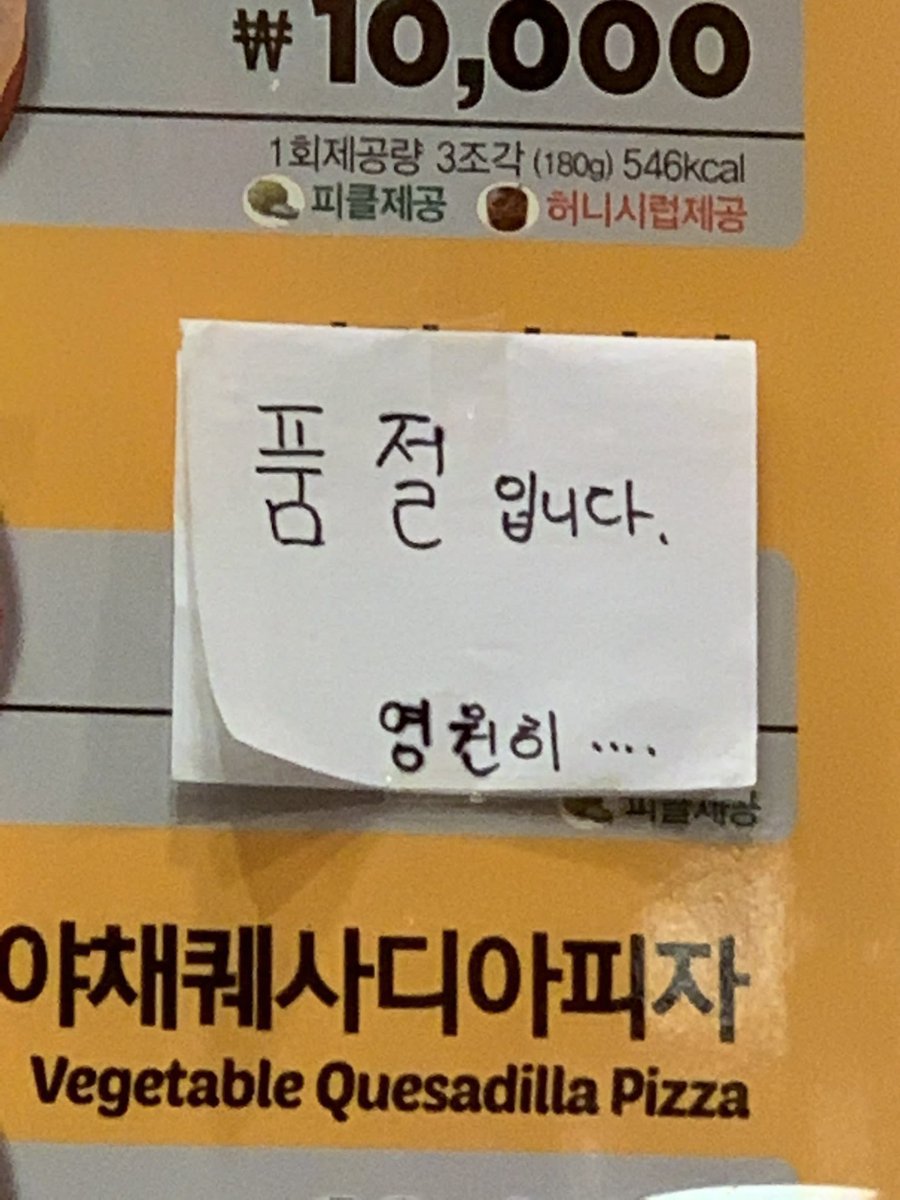 ₩10,000
1회제공량 3조각 (180g) 546kcal
피클제공 허니시럽제공
품절입니다.
영원히 ....
야채퀘사디아피자
Vegetable Quesadilla Pizza